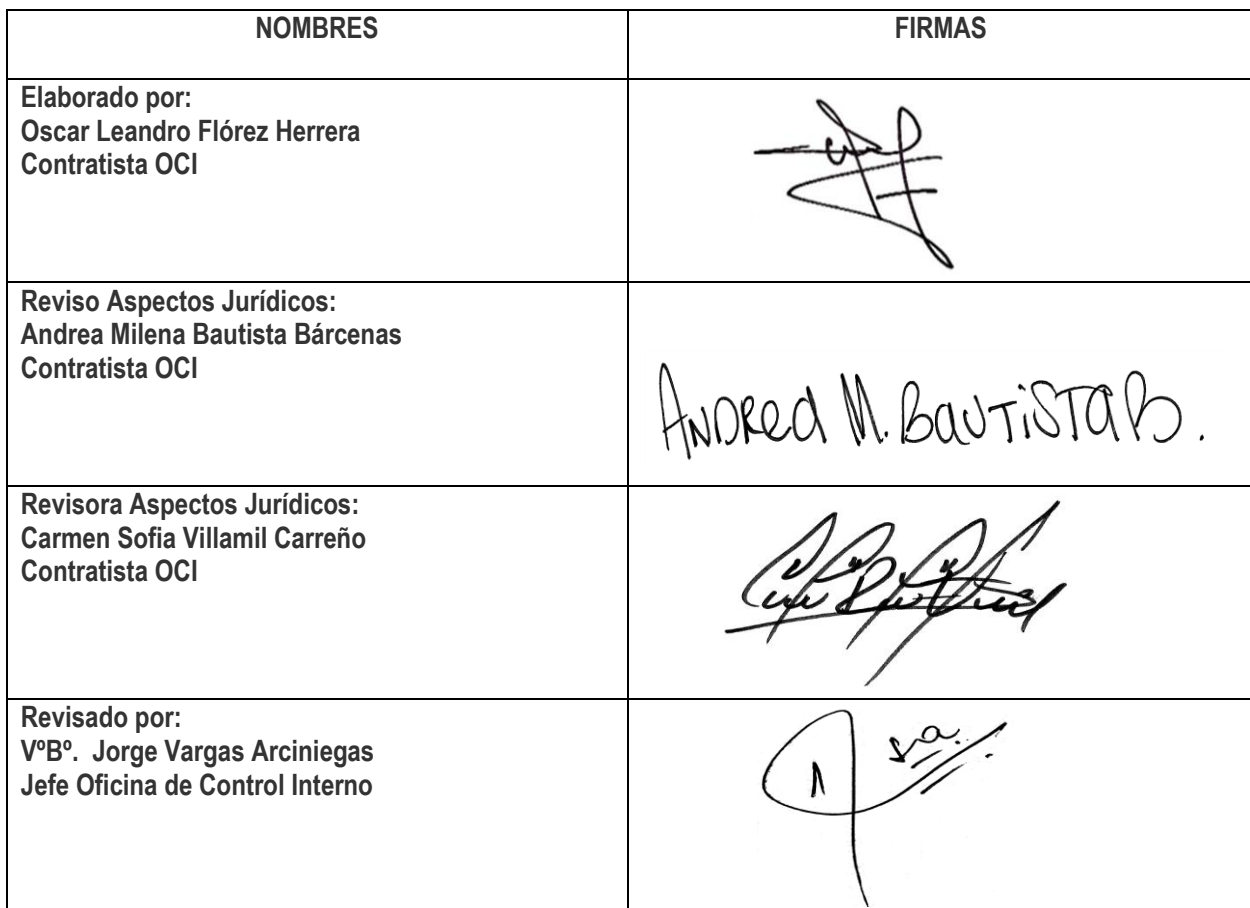 NOMBRES
FIRMAS
Elaborado por:
Oscar Leandro Flórez Herrera
Contratista OCI
Reviso Aspectos Jurídicos:
Andrea Milena Bautista Bárcenas
Contratista OCI
ANDREA M. BAUTISTA B.
Revisora Aspectos Jurídicos:
Carmen Sofia Villamil Carreño
Contratista OCI
Revisado por:
VºBº.  Jorge Vargas Arciniegas
Jefe Oficina de Control Interno